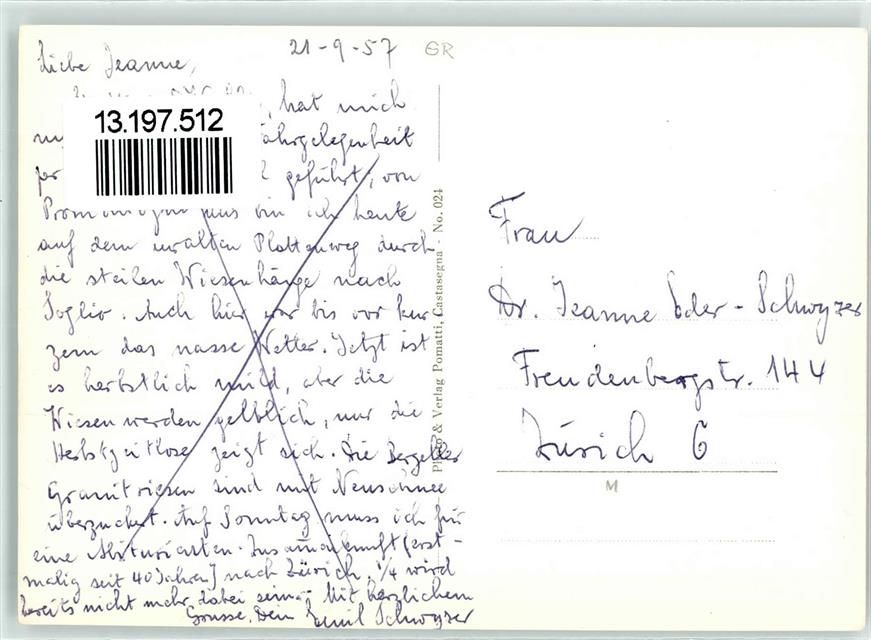 21-9-57 GR
Liebe Jeanne,
hat mich
13.197.512
Fahrgelegenheit
per geführt, von
Promontogno aus bin ich heute
auf dem uralten Plattenweg durch
die steilen Wiesenhänge nach
Soglio. Auch hier war bis vor kur
zem das nasse Wetter. Jetzt ist
es herbstlich mild, aber die
Wiesen werden gelblich, nur die
Herbstzeitlose zeigt sich. Die Bergeller
Granitriesen sind mit Neuschnee
überzuckert. Auf Sonntag muss ich für
eine Abiturienten-Zusammenkunft (erst-
malig seit 40 Jahren) nach Zürich, 1/4 wird
bereits nicht mehr dabei sein. Mit herzlichem
Grusse, Dein Emil Schwyzer
Photo & Verlag Pomatti, Castasegna - No. 024
Frau
Dr. Jeanne Eder-Schwyzer
Freudenbergstr. 144
Zürich 6
M